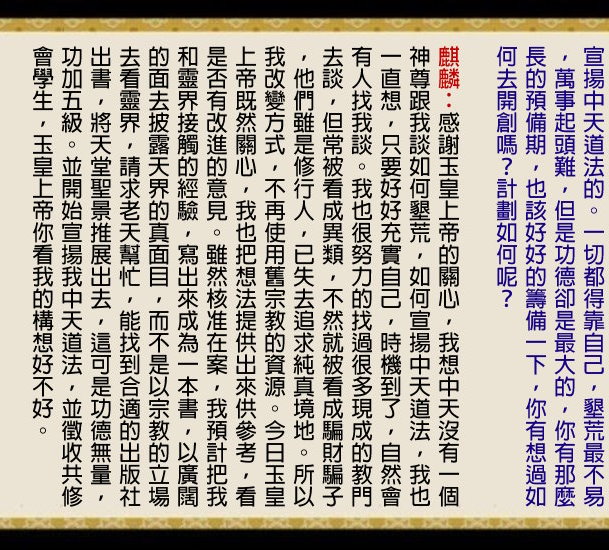 宣揚中天道法的。一切都得靠自己，墾荒最不易
，萬事起頭難，但是功德卻是最大的，你有那麼
長的預備期，也該好好的籌備一下，你有想過如
何去開創嗎？計劃如何呢？
麒麟：感謝玉皇上帝的關心，我想中天沒有一個
神尊跟我談如何墾荒，如何宣揚中天道法，我也
一直想，只要好好充實自己，時機到了，自然會
有人找我談。我也很努力的找過很多現成的教門
去談，但常被看成異類，不然就被看成騙財騙子
，他們雖是修行人，已失去追求純真境地。所以
我改變方式，不再使用舊宗教的資源。今日玉皇
上帝既然關心，我也把想法提供出來供參考，看
是否有改進的意見。雖然核准在案，我預計把我
和靈界接觸的經驗，寫出來成為一本書，以廣闊
的面去披露天界的真面目，而不是以宗教的立場
去看靈界，請求老天幫忙，能找到合適的出版社
出書，將天堂聖景推展出去，這可是功德無量，
功加五級。並開始宣揚我中天道法，並徵收共修
會學生，玉皇上帝你看我的構想好不好。